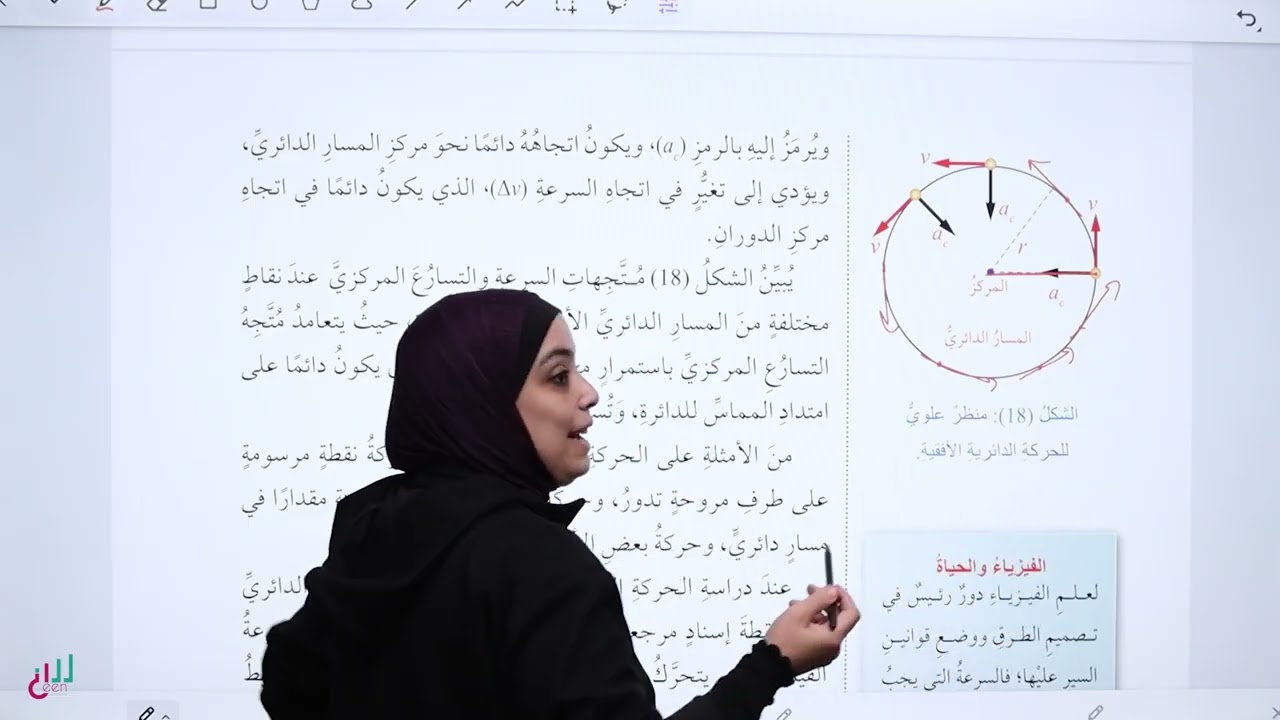 ويُرمَزُ إليهِ بالرمزِ (a_c)، ويكونُ اتجاهُهُ دائمًا نحوَ مركزِ المسارِ الدائريِّ،
ويؤدي إلى تغيُّرٍ في اتجاهِ السرعةِ (Δv)، الذي يكونُ دائمًا في اتجاهِ
مركزِ الدورانِ.
يُبيِّنُ الشكلُ (18) مُتَّجِهاتِ السرعةِ والتسارُعَ المركزيَّ عندَ نقاطٍ
مختلفةٍ منَ المسارِ الدائريِّ حيثُ يتعامدُ مُتَّجِهُ
التسارُعِ المركزيِّ باستمرارٍ يكونُ دائمًا على
امتدادِ المماسِّ للدائرةِ،
منَ الأمثلةِ على الحركةِ نقطةٍ مرسومةٍ
على طرفِ مروحةٍ تدورُ، مقدارًا في
مسارٍ دائريٍّ، وحركةُ بعضِ
عندَ دراسةِ الحركةِ الدائريِّ
إسنادٍ
يتحرَّكُ
v
v
v
a_c
a_c
a_c
r
المركزُ
المسارُ الدائريُّ
الشكلُ (18): منظرٌ علويٌّ
للحركةِ الدائريةِ الأفقيةِ.
الفيزياءُ والحياةُ
لعلمِ الفيزياءِ دورٌ رئيسٌ في
تصميمِ الطرقِ ووضعِ قوانينِ
السيرِ عليْها؛ فالسرعةُ التي يجبُ
een